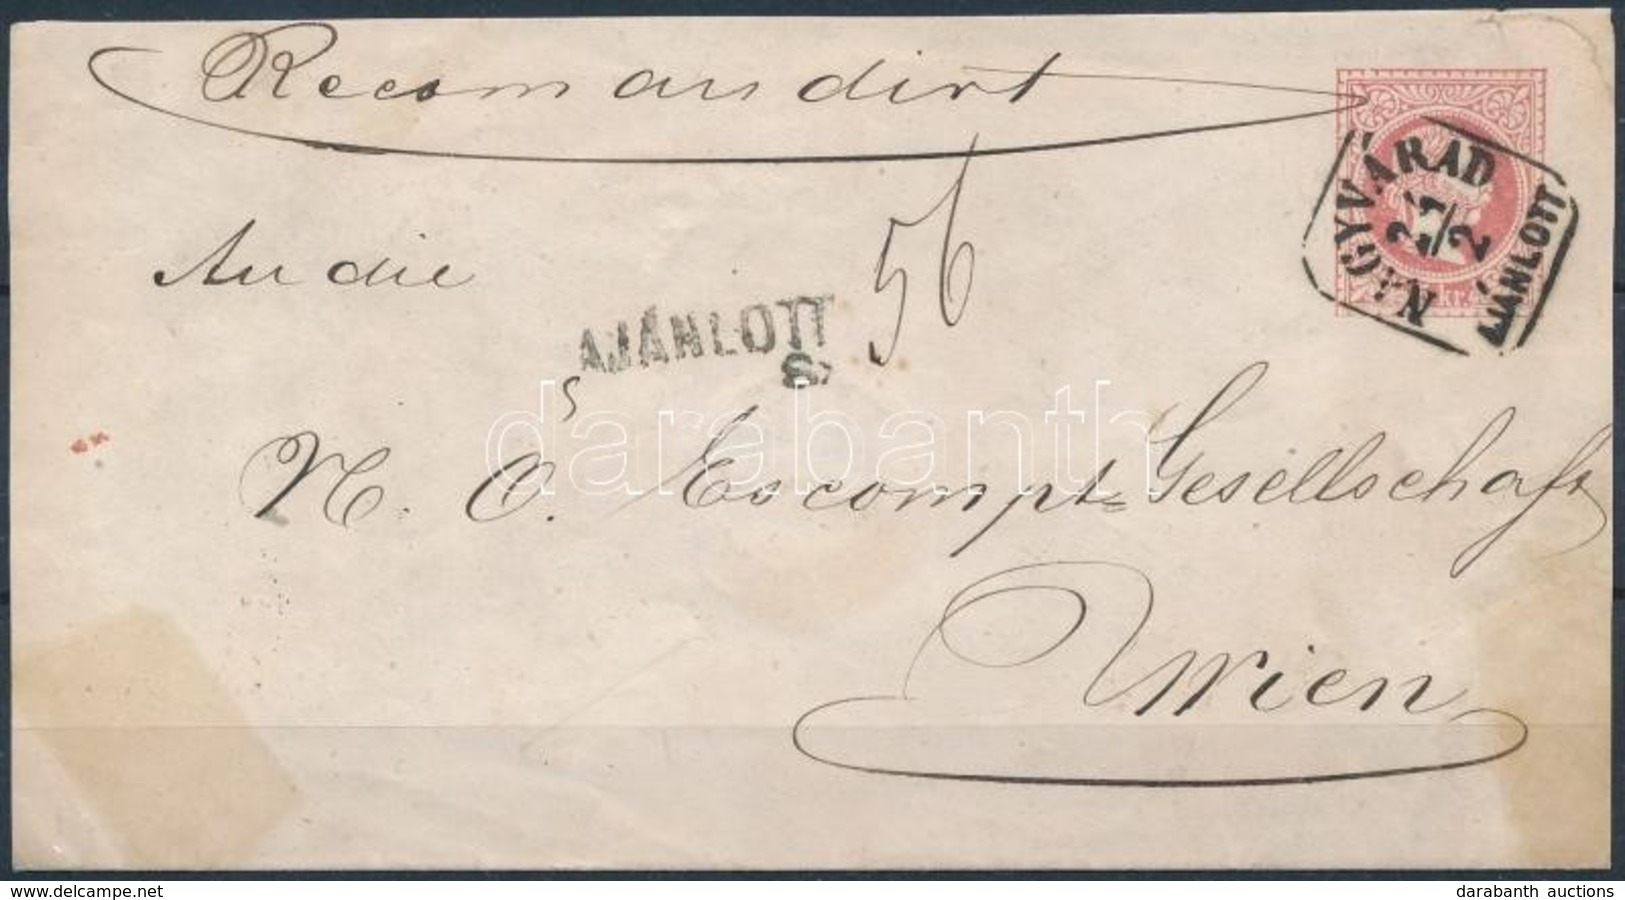 Recomandirt
NAGYVÁRAD
21/2
AJÁNLOTT
56
An die
AJÁNLOTT
S
darabanth
N. O. Escompt=Gesellschaft
Wien
www.delcampe.net
darabanth auctions